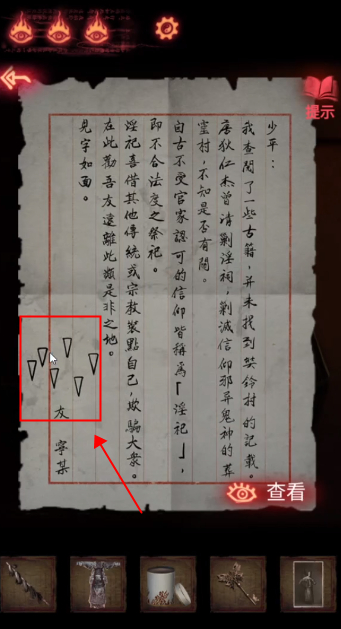 提示
少平：
我查閱了一些古籍，并未找到奘鈴村的記載。
唐狄仁杰曾清剿淫祠，剿滅信仰邪异鬼神的葬
靈村，不知是否有關。
自古不受官家認可的信仰皆稱爲「淫祀」，
即不合法度之祭祀。
淫祀喜借其他傳統或宗教裝點自己，欺騙大衆。
在此勸吾友遠離此類是非之地。
見字如面。
友
寧某
查看